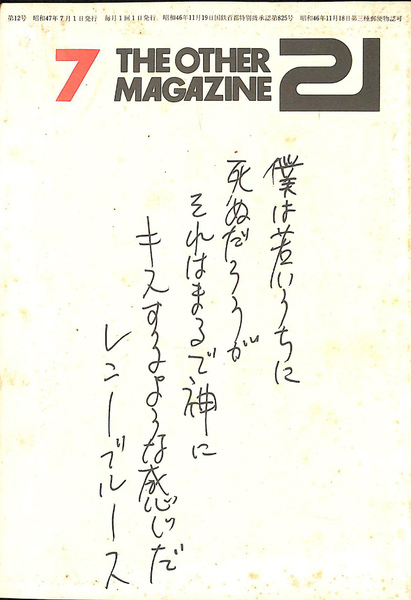 第12号 昭和47年7月1日発行 毎月1回1日発行 昭和46年11月19日国鉄首都特別扱承認第825号 昭和46年11月18日第三種郵便物認可
7
THE OTHER
MAGAZINE
21
僕は若いうちに
死ぬだろうが
それはまるで神に
キスするような感じだ
レニーブルース